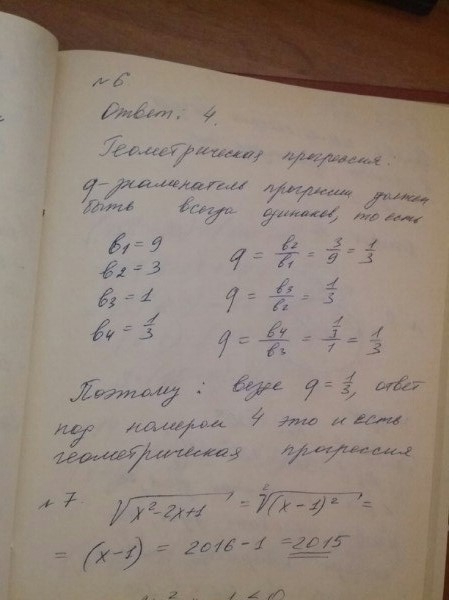 №6
Ответ: 4.
Геометрическая прогрессия:
q-знаменатель прогрессии должен
быть всегда одинаков, то есть
b1 = 9 q = b2/b1 = 3/9 = 1/3
b2 = 3
b3 = 1 q = b3/b2 = 1/3
b4 = 1/3 q = b4/b3 = 1/3/1 = 1/3
Поэтому: везде q = 1/3, ответ
под номером 4 это и есть
геометрическая прогрессия
№7 √(x²-2x+1) = ²√((x-1)²) =
= (x-1) = 2016-1 = 2015